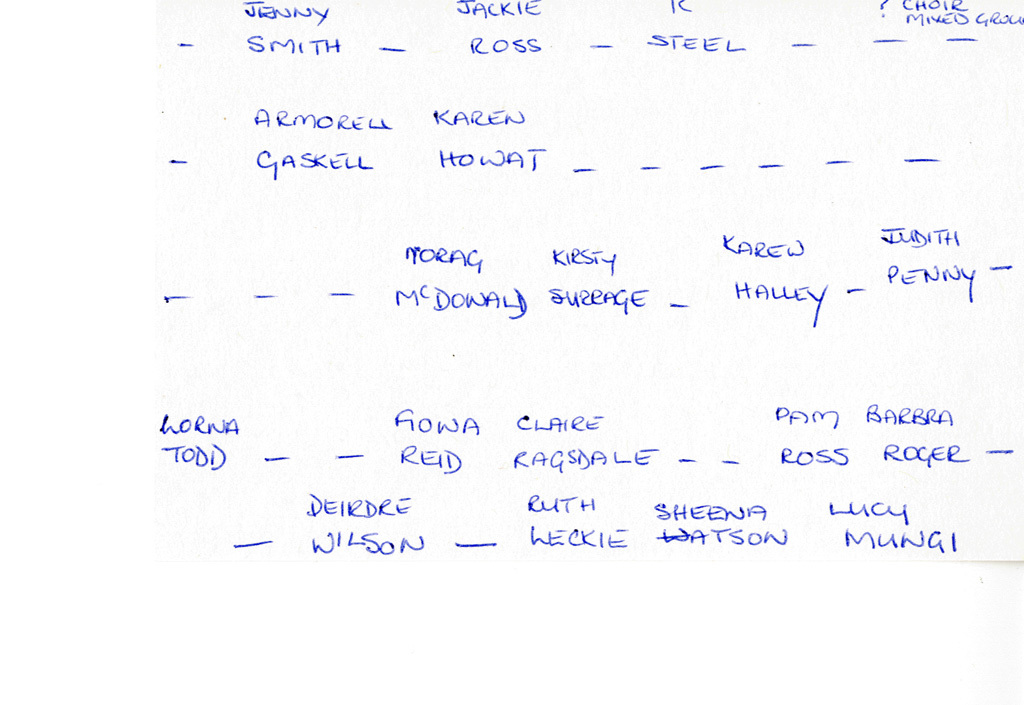 JENNY JACKIE K ? CHOIR
MIXED GROUP
- SMITH - ROSS - STEEL - - -
ARMORELL KAREN
- GASKELL HOWAT - - - - - -
MORAG KIRSTY KAREN JUDITH
- - - MCDONALD SURRAGE - HALLEY - PENNY -
LORNA FIONA CLAIRE PAM BARBRA
TODD - - REID RAGSDALE - - ROSS ROGER -
DEIRDRE RUTH SHEENA LUCY
- WILSON - LECKIE WATSON MUNGI